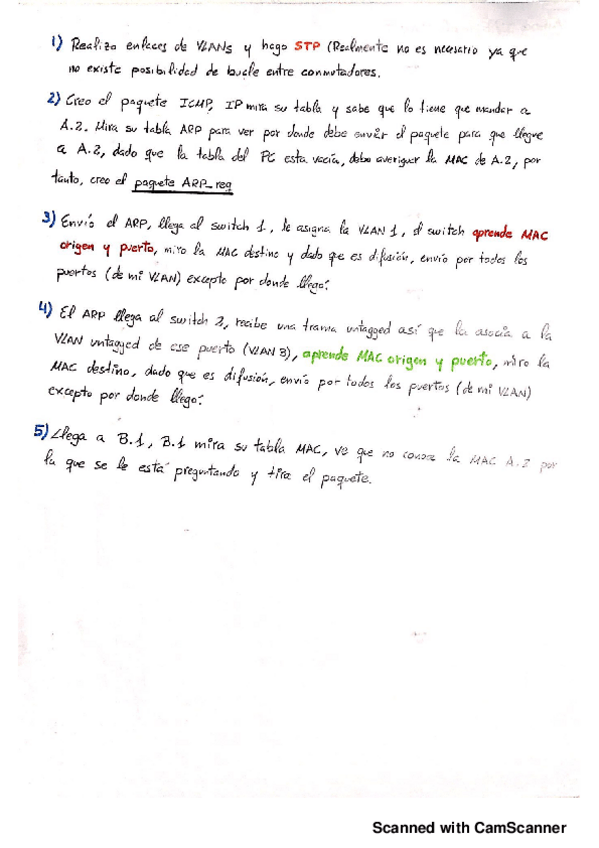 1) Realizo enlaces de VLANs y hago STP (Realmente no es necesario ya que
no existe posibilidad de bucle entre conmutadores.
2) Creo el paquete ICMP, IP mira su tabla y sabe que lo tiene que mandar a
A.2. Mira su tabla ARP para ver por donde debe enviar el paquete para que llegue
a A.2, dado que la tabla del PC esta vacía, debo averiguar la MAC de A.2, por
tanto, creo el paquete ARP_req
3) Envío el ARP, llega al switch 1, le asigna la VLAN 1, el switch aprende MAC
origen y puerto, miro la MAC destino y dado que es difusión, envío por todos los
puertos (de mi VLAN) excepto por donde llegó:
4) El ARP llega al switch 2, recibe una trama untagged así que la asocia a la
VLAN untagged de ese puerto (VLAN 3), aprende MAC origen y puerto, miro la
MAC destino, dado que es difusión, envío por todos los puertos (de mi VLAN)
excepto por donde llegó:
5) Llega a B.1, B.1 mira su tabla MAC, ve que no conoce la MAC A.2 por
la que se le está preguntando y tira el paquete.
Scanned with CamScanner